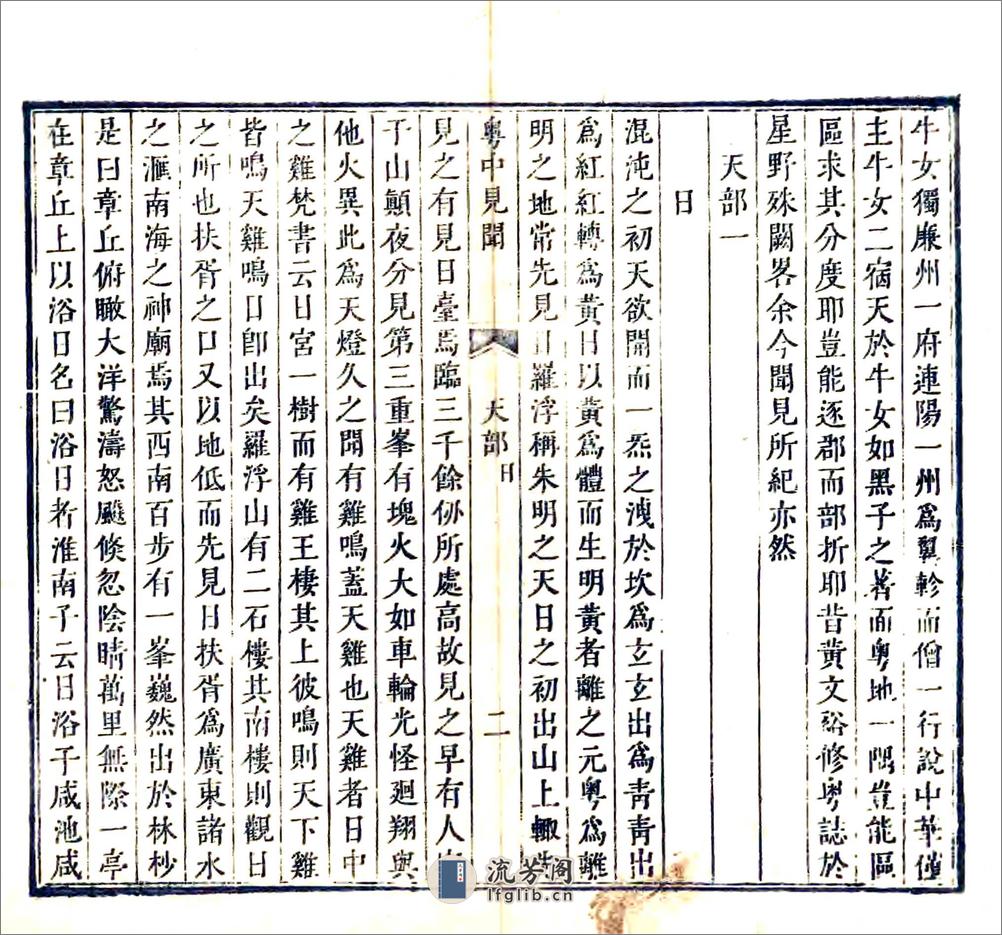 牛女獨廉州一府連陽一州爲翼軫而僧一行說中華僅
主牛女二宿天於牛女如黑子之著面粵地一隅豈能區
區求其分度耶豈能逐郡而部折耶昔黃文裕修粵誌於
星野殊闕畧余今聞見所紀亦然
天部一
日
混沌之初天欲開而一炁之洩於坎爲玄玄出爲靑靑出
爲紅紅轉爲黃日以黃爲體而生明黃者離之元粵爲離
明之地常先見日羅浮稱朱明之天日之初出山上輙先
粵中見聞 天部 日 二
見之有見日臺焉臨三千餘仞所處高故見之早有人
子山顚夜分見第三重峯有塊火大如車輪光怪廻翔與
他火異此爲天燈久之聞有雞鳴蓋天雞也天雞者日中
之雞梵書云日宮一樹而有雞王棲其上彼鳴則天下雞
皆鳴天雞鳴日卽出矣羅浮山有二石樓其南樓則觀日
之所也扶胥之口又以地低而先見日扶胥爲廣東諸水
之滙南海之神廟焉其西南百步有一峯巍然出於林杪
是曰章丘俯瞰大洋驚濤怒飈倏忽陰晴萬里無際一亭
在章丘上以浴日名曰浴日者淮南子云日浴于咸池咸
流芳阁
lfglib.cn